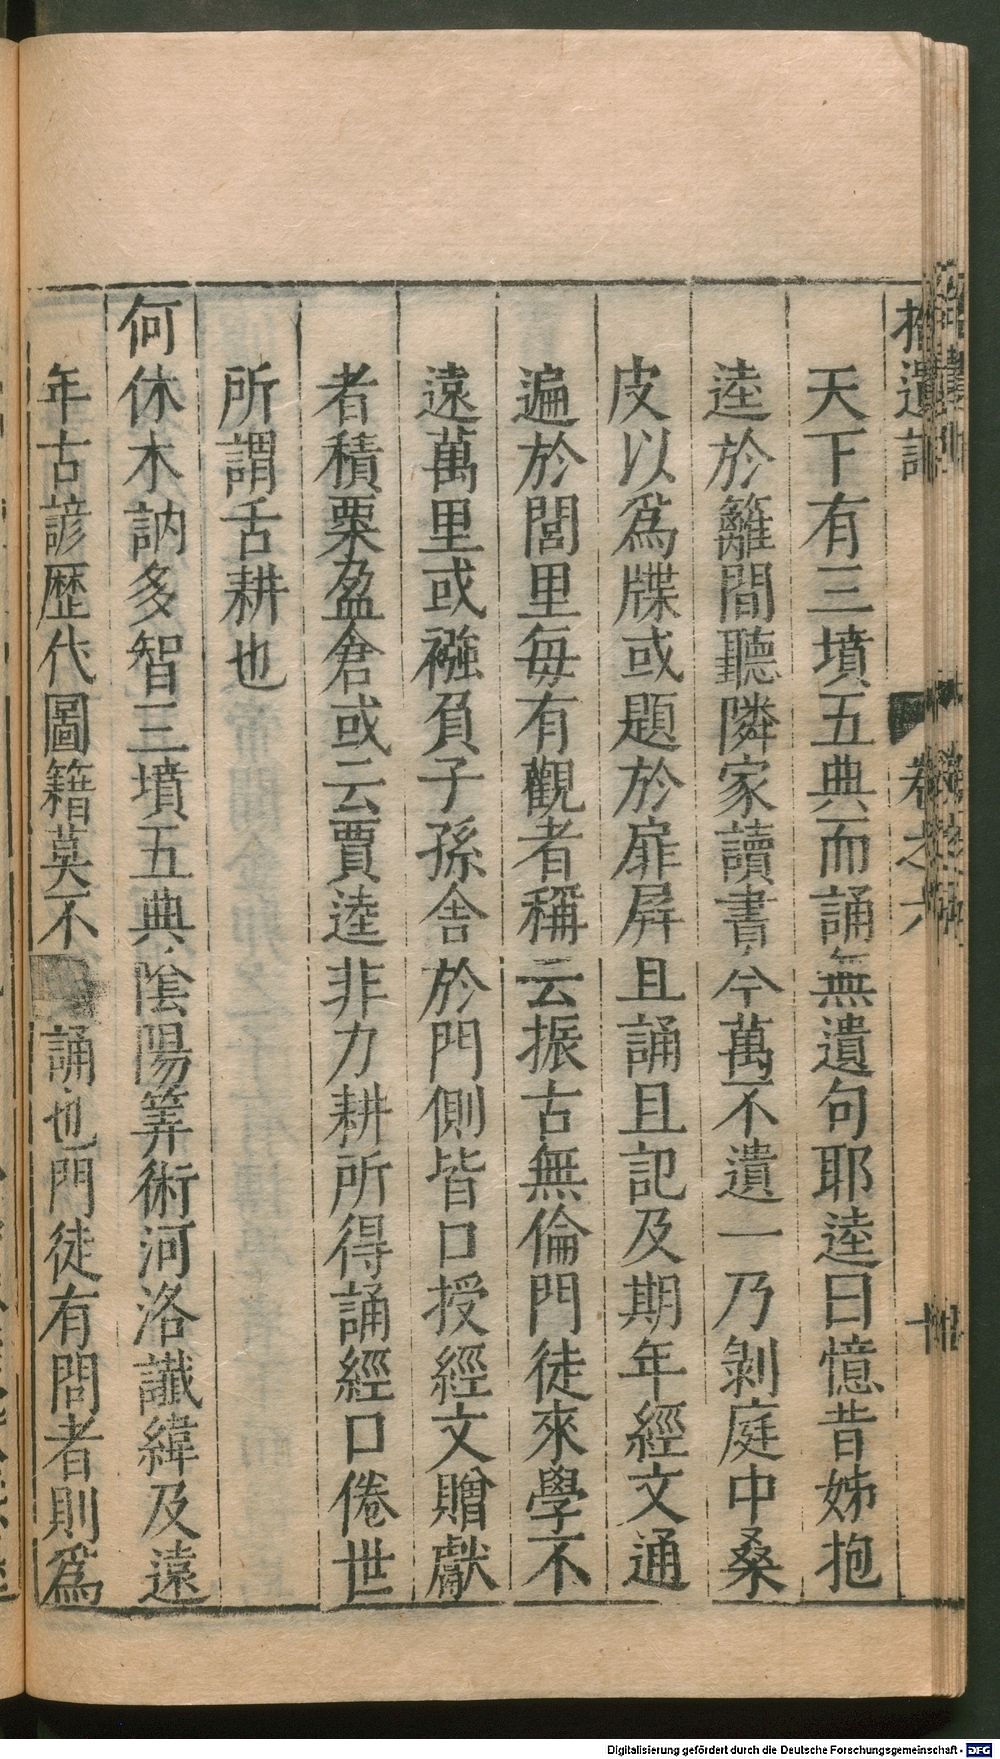 拾遺記 卷之六 十
天下有三墳五典而誦無遺句耶逵曰憶昔姊抱
逵於籬間聽隣家讀書今萬不遺一乃剝庭中桑
皮以爲牒或題於扉屛且誦且記及期年經文通
遍於閭里每有觀者稱云振古無倫門徒來學不
遠萬里或襁負子孫舍於門側皆口授經文贈獻
者積粟盈倉或云賈逵非力耕所得誦經口倦世
所謂舌耕也
何休木訥多智三墳五典陰陽筭術河洛讖緯及遠
年古諺歷代圖籍莫不誦也門徒有問者則爲
Digitalisierung gefördert durch die Deutsche Forschungsgemeinschaft - DFG